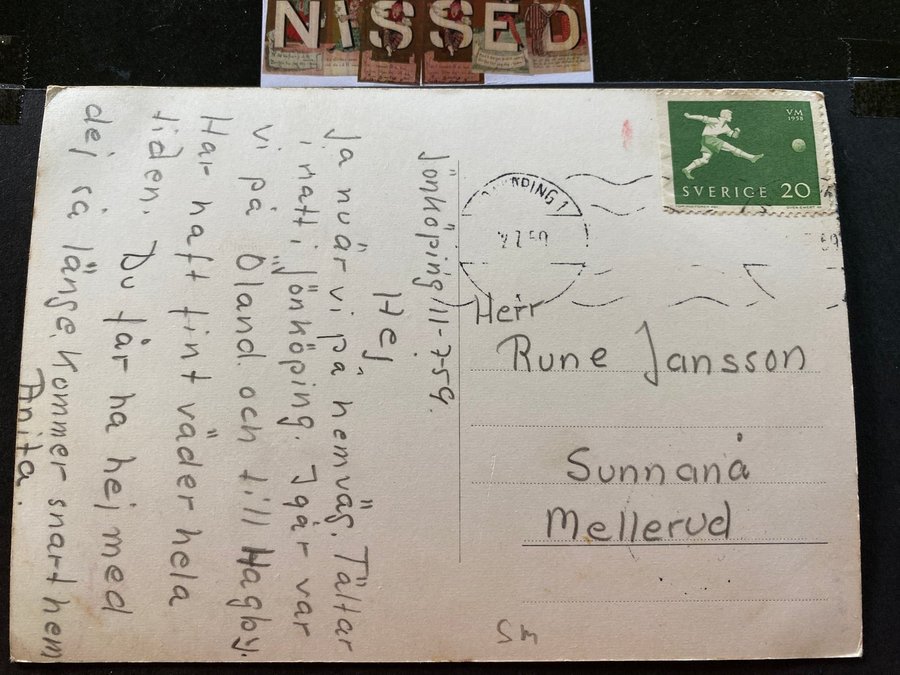 NISSED
Jönköping 11-7-59.
Hej,
Ja nu är vi på hemväg. Tältar
i natt i Jönköping. Igår var
vi på Öland och till Hagby.
Har haft fint väder hela
tiden. Du får ha hej med
dej så länge. Kommer snart hem
Anita.
VM
1958
SVERIGE 20
KÖPING 1
7 59
59
Herr
Rune Jansson
Sunnanå
Mellerud